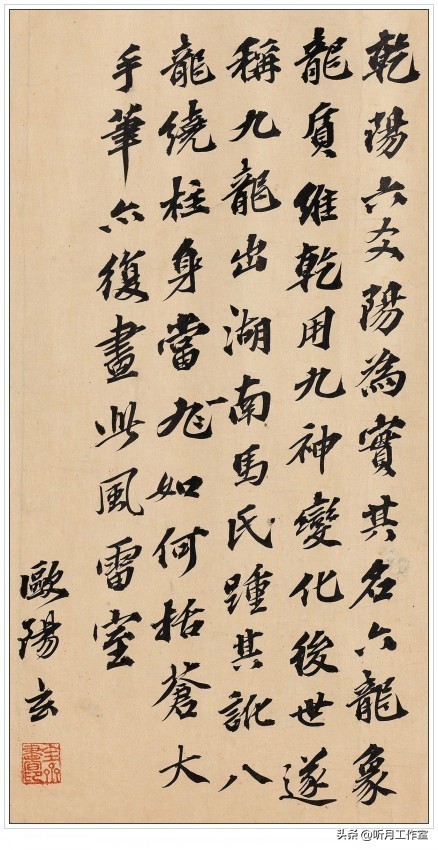 乾陽六爻陽為實其名六龍象
龍質維乾用九神變化後世遂
稱九龍出湖南馬氏踵其訛八
龍繞柱身當一如何栝蒼大
手筆亦復畫此風雷室
歐陽玄
头条 @听月工作室